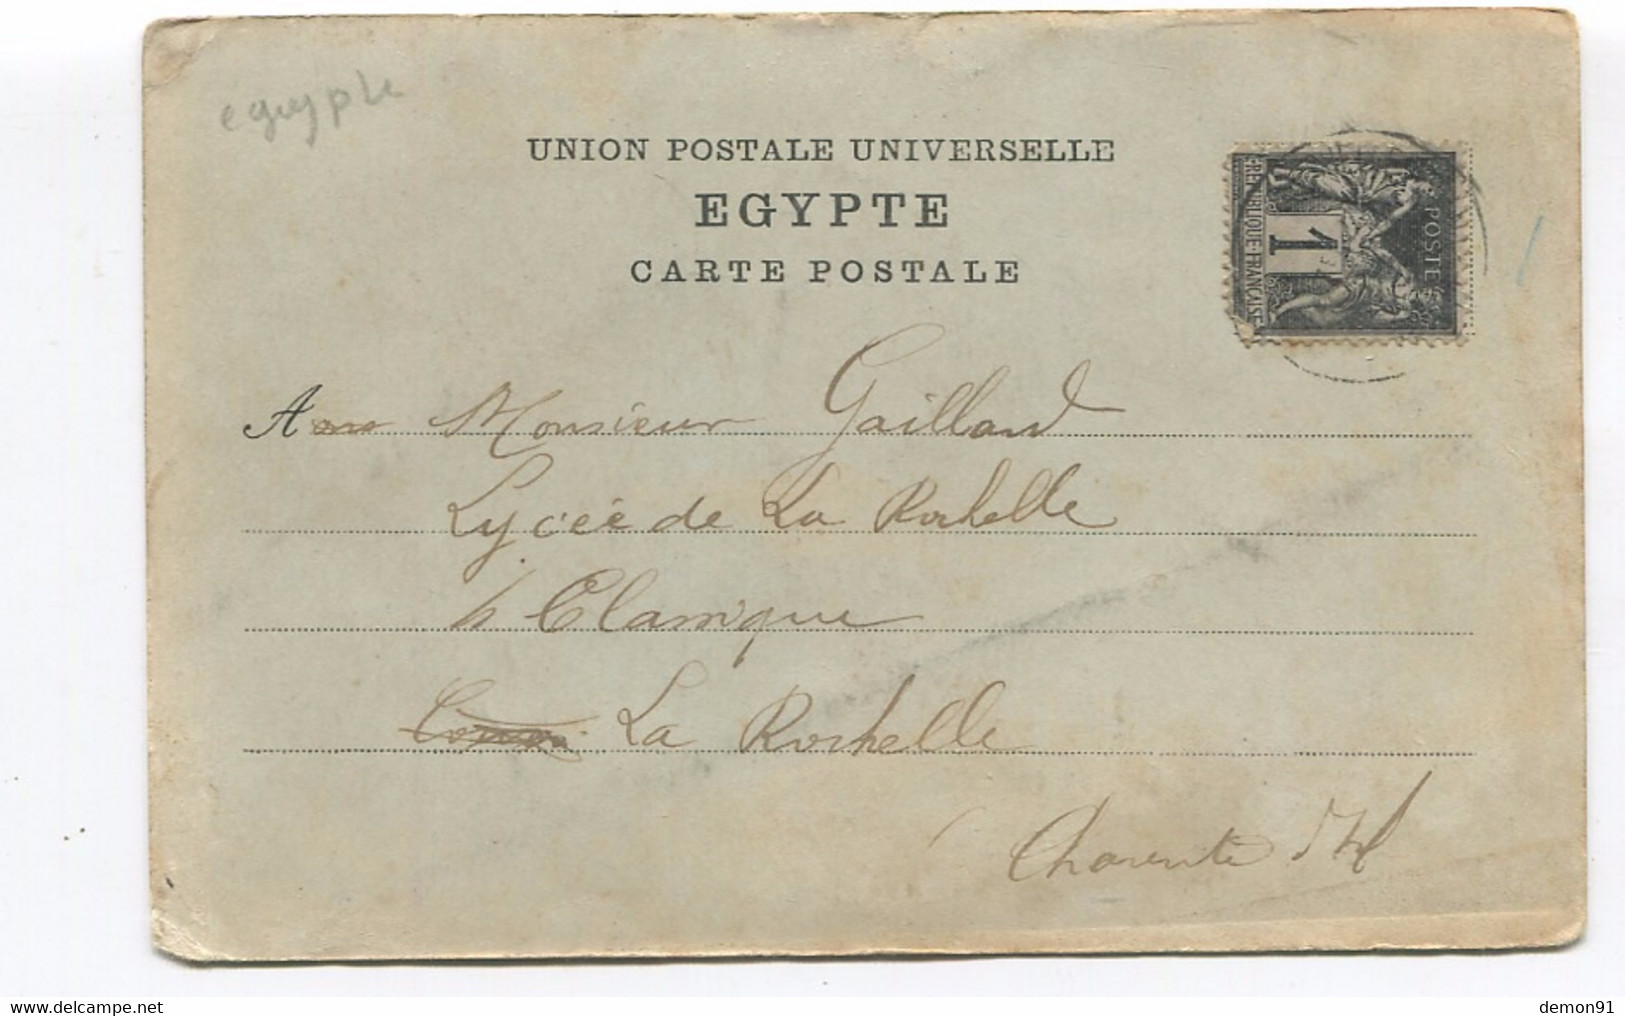 egypte
UNION POSTALE UNIVERSELLE
EGYPTE
CARTE POSTALE
POSTES
1
REPUBLIQUE FRANCAISE
A Monsieur Gaillard
Lycée de La Rochelle
Classique
La Rochelle
Charente
delcampe.net
demon91